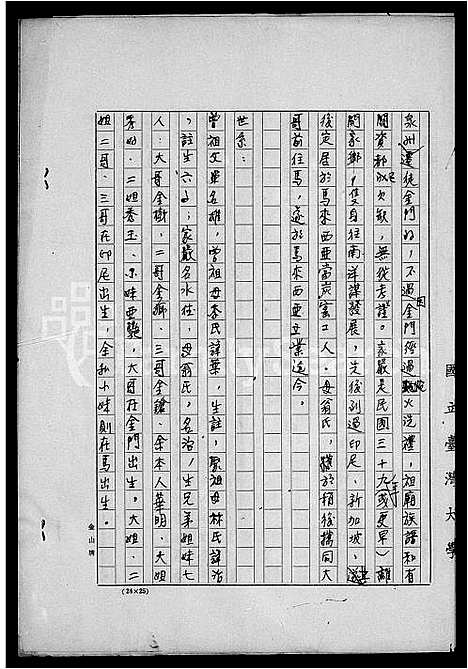 泉州遷徙金門的，不過因金門經過炮火洗禮，祖廟族譜和有
關資料都已欠缺，無從考證。家嚴是民國三十九年(或更早)離
開家鄉，隻身往南洋謀發展，先後到過印尼、新加坡，
後定居於馬來西亞當炭窰工人。母翁氏，於稍後携同大
哥前往馬，遂於馬來西亞立業迄今。
世系：
曾祖父單名雄，曾祖母李氏諱葉，生註，蒙祖母林氏諱治
，註生六子；家嚴名水在，母翁氏，名治，生兄弟姐妹七
人：大哥金樹，二哥金鄉、三哥金鎗、余本人華明、大姐
秀、二姐秀玉、小妹亞鸞，大哥在金門出生。大姐、二
姐二哥、三哥在印尼出生，余和小妹則在馬出生。
國立臺灣大學
金山牌
(24×25)